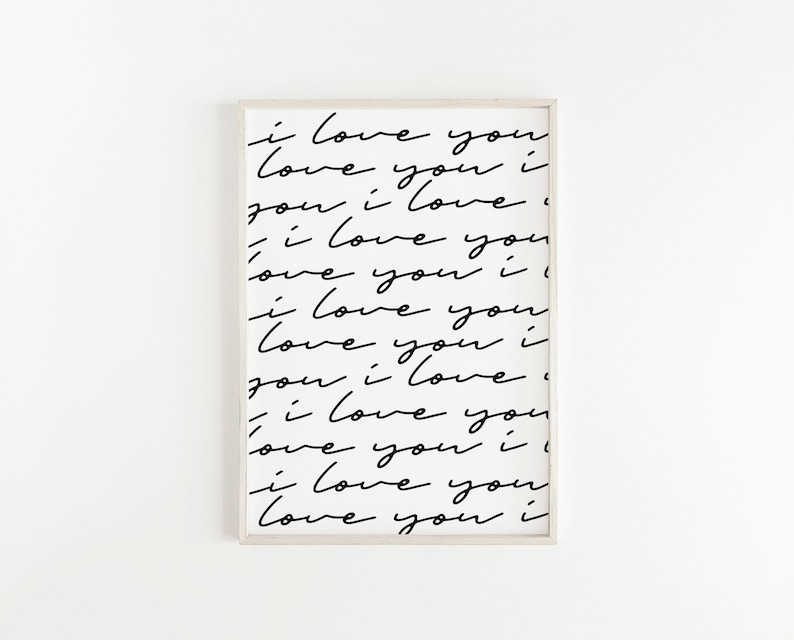 i love you
love you i
you i love
i love you
love you i
i love you
love you i
you i love
i love you
love you i
i love you
love you i